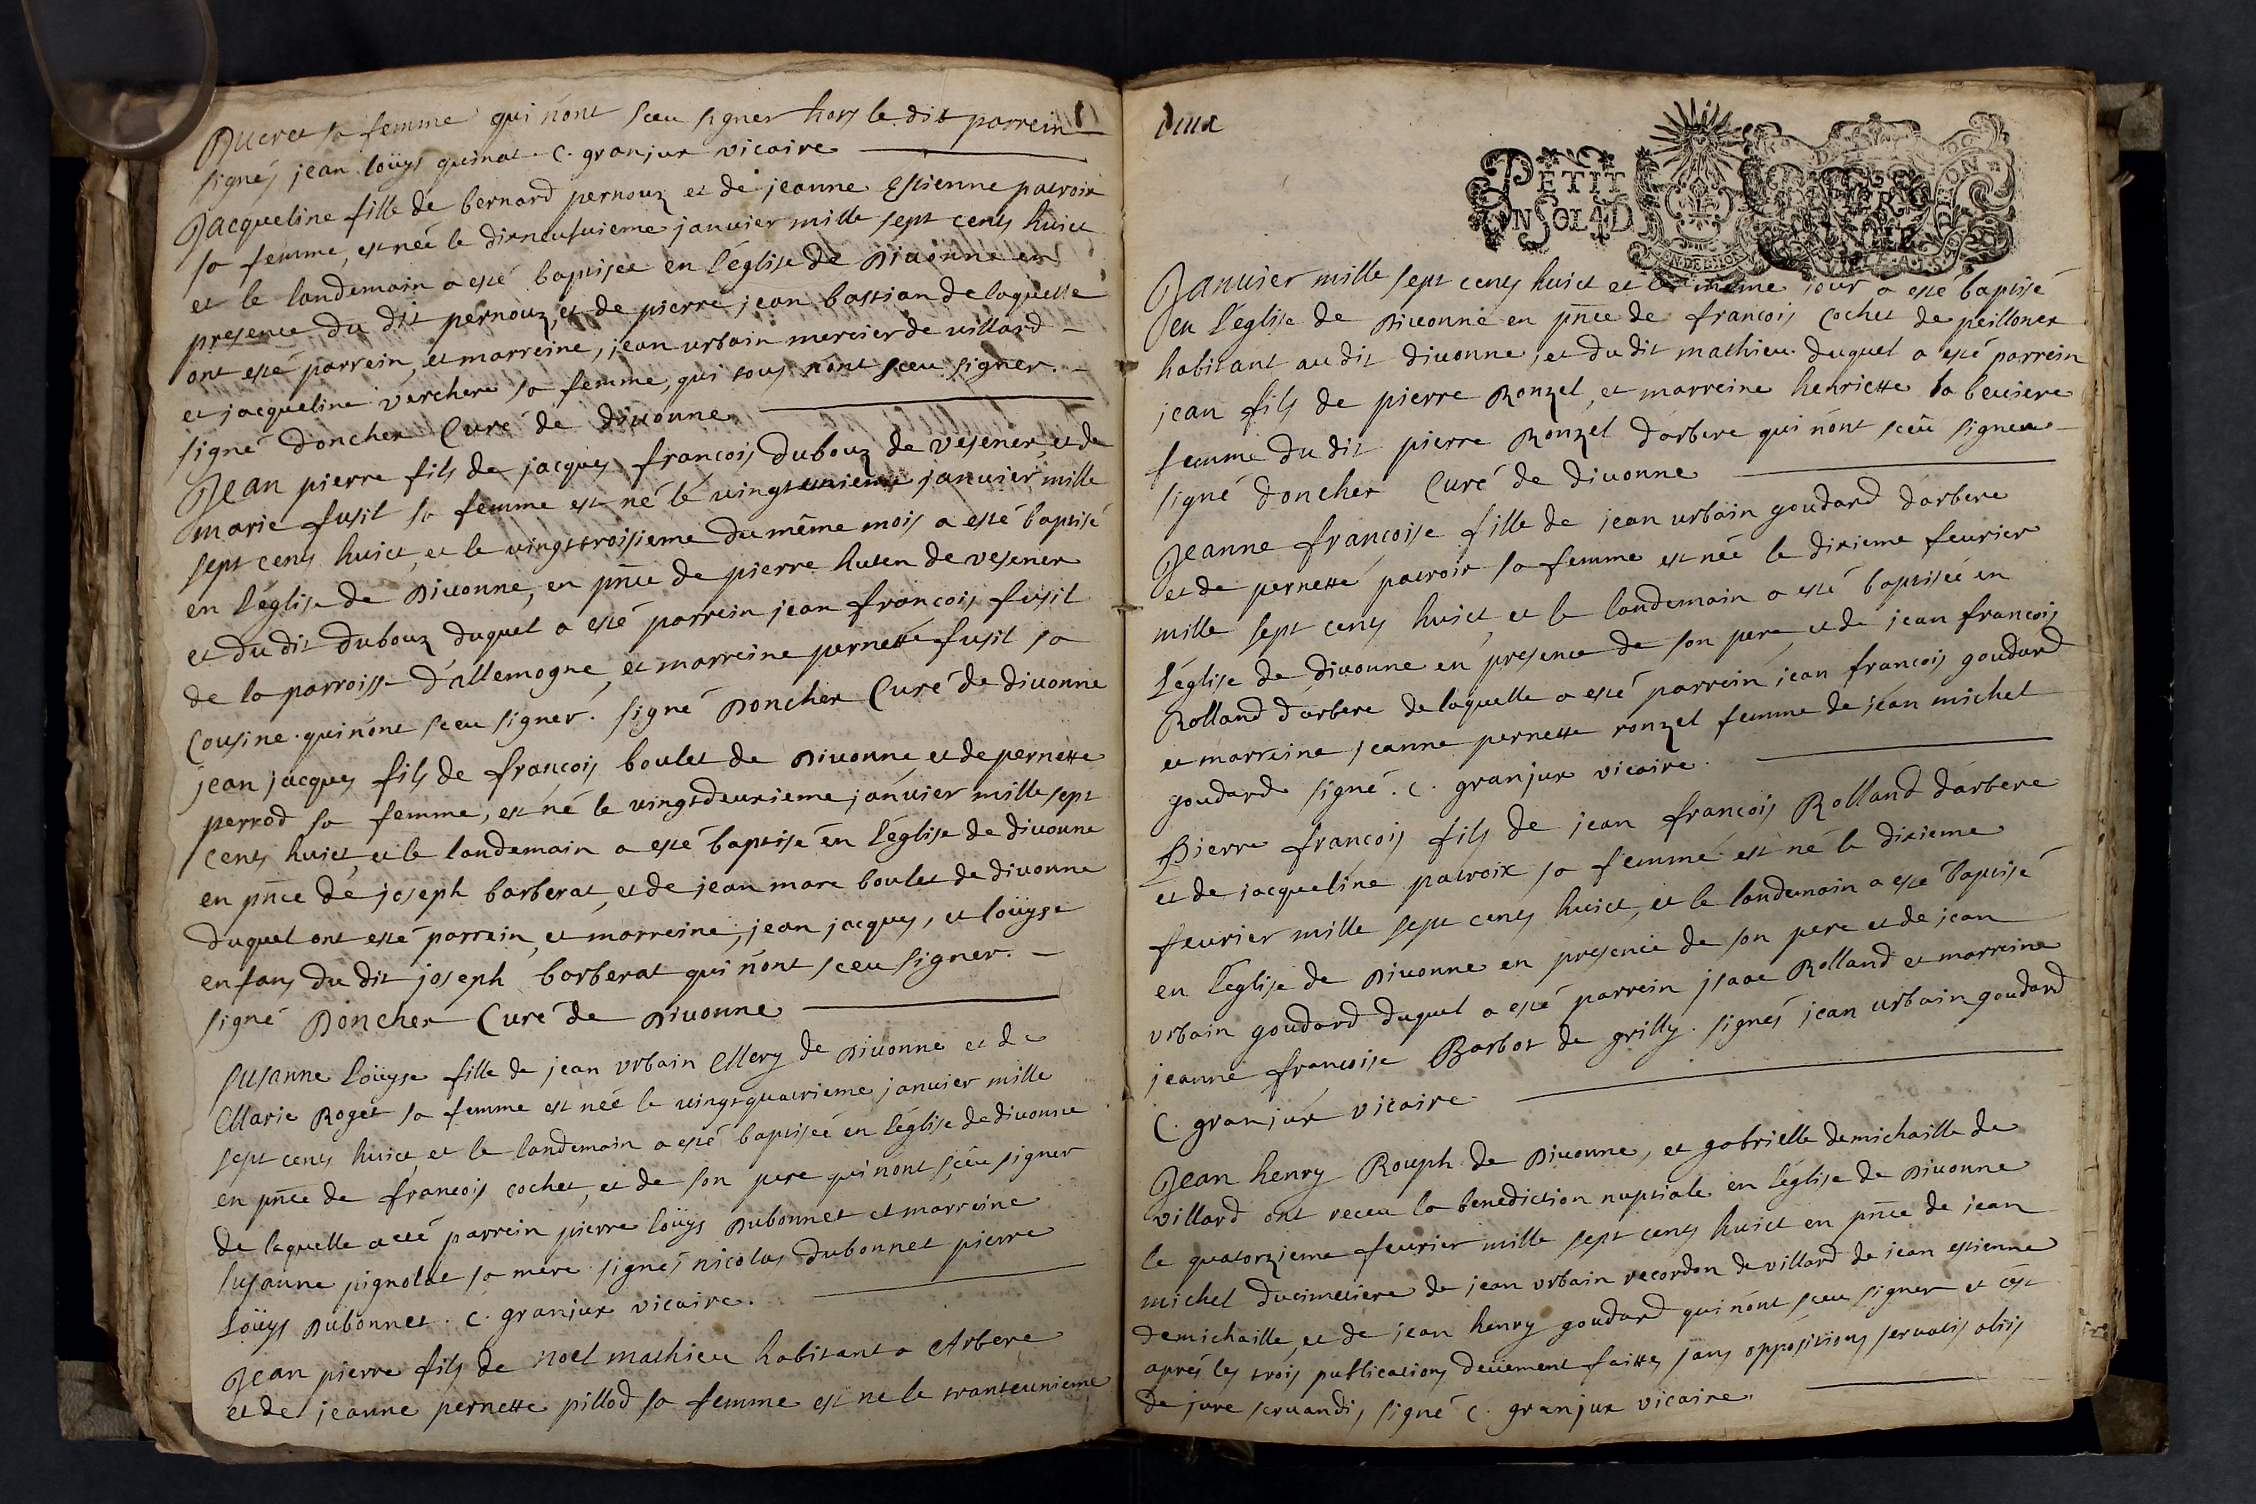 Ducret sa femme qui n'ont sceu signer hors le dit parrein
signés jean loüys quinat. C. granjux vicaire
Jacqueline fille de bernard pernoux et de jeanne Estienne patroix
sa femme, est née le dixneufuieme januier mille sept cents huict
et le landemain a esté baptisée en l'église de Diuonne en
presence du dit pernoux, et de pierre jean bastian de laquelle
ont esté parrein, et marreine, jean urbain mercier de villard
et jacqueline verchere sa femme, qui tous n'ont sceu signer.
signé Doncher Curé de diuonne
Jean pierre fils de jacques francois Dubouz de vesener, et de
marie fusil sa femme est né le vingtunieme januier mille
sept cents huict, et le vingttroisieme du même mois a esté baptisé
en l'église de Diuonne, en pñce de pierre huten de vesener
et du dit dubouz duquel a esté parrein jean francois fusil
de la parroisse d'allemogne, et marreine pernette fusil sa
Cousine. qui n'ont sceu signer. signé Doncher Curé de diuonne
jean jacques fils de francois boulet de Diuonne, et de pernette
perrod sa femme, est né le vingtdeuxieme januier mille sept
cents huict, et le landemain a esté baptisé en l'église de diuonne
en pñce de joseph barberat, et de jean marc boulet de diuonne
duquel ont esté parrein, et marreine, jean jacques, et loüyse
enfans du dit joseph barberat qui n'ont sceu signer.
signé Doncher Curé de Diuonne
Susanne Loüyse fille de jean vrbain Mery de Diuonne et de
Marie Roget sa femme est née le vingtquatrieme januier mille
sept cents huict, et le landemain a esté baptisée en l'église de diuonne
en pñce de francois cochet, et de son pere qui n'ont sceu signer
de laquelle a eté parrein pierre loüys Dubonnet et marreine
susanne pignolat sa mere signés nicolas dubonnet pierre
Loüys Dubonnet. C. granjux vicaire.
Jean pierre fils de noel mathieu habitant a Arbere
et de jeanne pernette pillod sa femme est ne le tranteunieme
deux
PETIT
Januier mille sept cents huict et le même jour a esté baptisé
en l'église de Diuonne en pñce de francois Cochet de peillonex
habitant au dit diuonne, et du dit mathieu. duquel a esté parrein
jean fils de pierre Ronzel, et marreine henriette la beuiere
femme du dit pierre Ronzel d'arbere qui n'ont sceu signer
signé Doncher Curé de diuonne
Jeanne francoise fille de jean urbain goudard d'arbere
et de pernette patroix sa femme est née le dixieme feurier
mille sept cents huict, et le landemain a esté baptisée en
L'église de diuonne en presence de son pere, et de jean francois
Rolland d'arbere de laquelle a esté parrein jean francois goudard
et marreine jeanne pernette ronzel femme de jean michel
goudard signé. C. granjux vicaire.
Pierre francois fils de jean francois Rolland d'arbere
et de jacqueline patroix sa femme est né le dixieme
feurier mille sept cents huict, et le landemain a esté baptisé
en l'église de Diuonne en presence de son pere et de jean
vrbain goudard duquel a esté parrein jsaac Rolland et marreine
jeanne francoise Barbot de grilly. signés jean urbain goudard
C. granjux vicaire
Jean henry Rouph de Diuonne, et gabrielle demichaille de
villard ont receu la benediction nuptiale en l'église de Diuonne
le quatorzieme feurier mille sept cents huict en pñce de jean
michel ducimetiere de jean vrbain recordon de villard de jean estienne
demichaille, et de jean henry goudard qui n'ont sceu signer et c'est
aprés les trois publications deüement faittes sans oppositions seruatis aliis
de jure seruandis, signé C. granjux vicaire